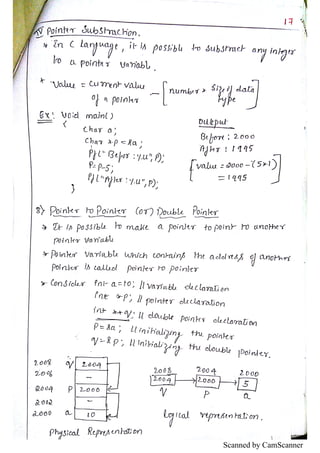 17
iv) Pointer Substraction.
* In C language, it is possible to substract any integer
to a pointer variable.
* Value = Current value of a pointer - [number * Size of data type]
Ex: Void main()
{
Char a;
Char *p = &a;
Pf("Befor : %u", p);
P = P-5;
Pf("After : %u", p);
Output
Before : 2000
After : 1995
[value = 2000 - (5*1)
= 1995]
8) Pointer to Pointer (or) Double Pointer
* It is possible to make a pointer to point to another
pointer variable
* Pointer variable which contains the address of another
Pointer is called pointer to pointer
* Consider int a=10; // variable declaration
int *p; // pointer declaration
int **q; // double pointer declaration
P = &a; // initializing the pointer
q = &p; // initializing the double pointer.
2008 q 2004
2006 -
2004 P 2000
2012 -
2000 a 10
Physical Representation
2008 2004 2000
2004 2000 5
q P a
Logical representation.
Scanned by CamScanner